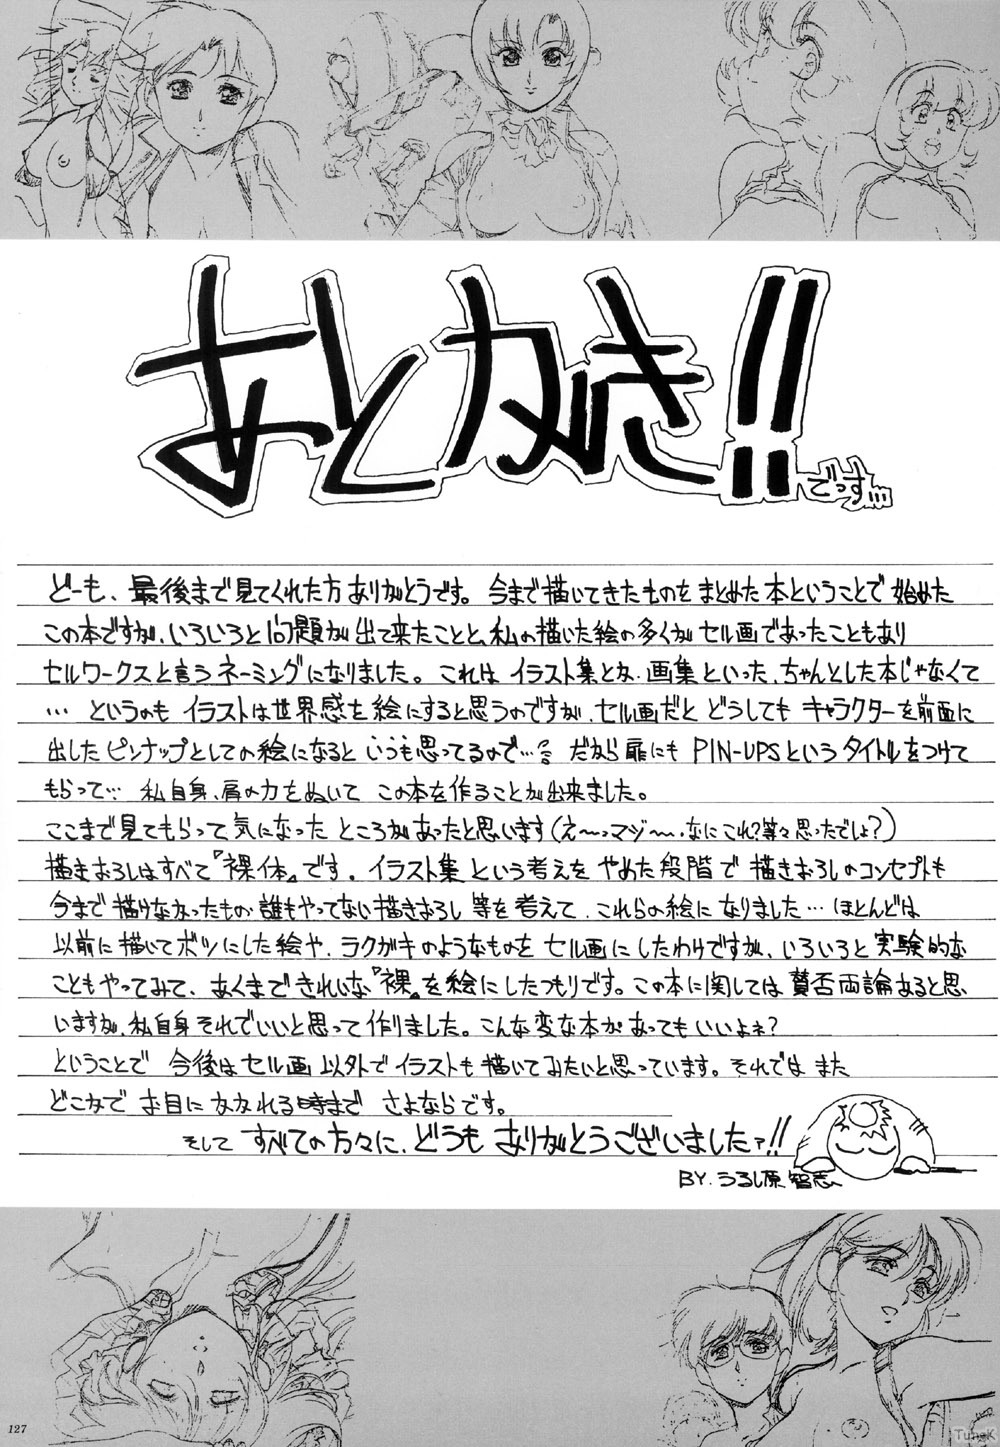 あとがき!!
でっす
どーも、最後まで見てくれた方ありがとうです。今まで描いてきたものをまとめた本ということで始めた
この本ですが、いろいろと問題が出て来たことと、私の描いた絵の多くがセル画であったこともあり
セルワークスと言うネーミングになりました。これはイラスト集とか、画集といった、ちゃんとした本じゃなくて
…というのもイラストは世界感を絵にすると思うのですが、セル画だとどうしてもキャラクターを前面に
出したピンナップとしての絵になるといつも思ってるので…。だから扉にもPIN-UPSというタイトルをつけて
もらって…私自身、肩の力をぬいてこの本を作ることが出来ました。
ここまで見てもらって気になったところがあったと思います(え〜っマジ〜、なにこれ?等々思ったでしょ?)
描きおろしはすべて『裸体』です。イラスト集という考えをやめた段階で描きおろしのコンセプトも
今まで描けなかったもの、誰もやってない描きおろし等を考えて、これらの絵になりました…ほとんどは
以前に描いてボツにした絵や、ラクガキのようなものをセル画にしたわけですが、いろいろと実験的な
こともやってみて、あくまできれいな『裸』を絵にしたつもりです。この本に関しては賛否両論あると思
いますが、私自身それでいいと思って作りました。こんな変な本があってもいいよね?
ということで今後はセル画以外でイラストも描いてみたいと思っています。それではまた
どこかでお目にかかれる時までさよならです。
そしてすべての方々に、どうもありがとうございましたァ!!
BY.うるし原智志
127
TuneK